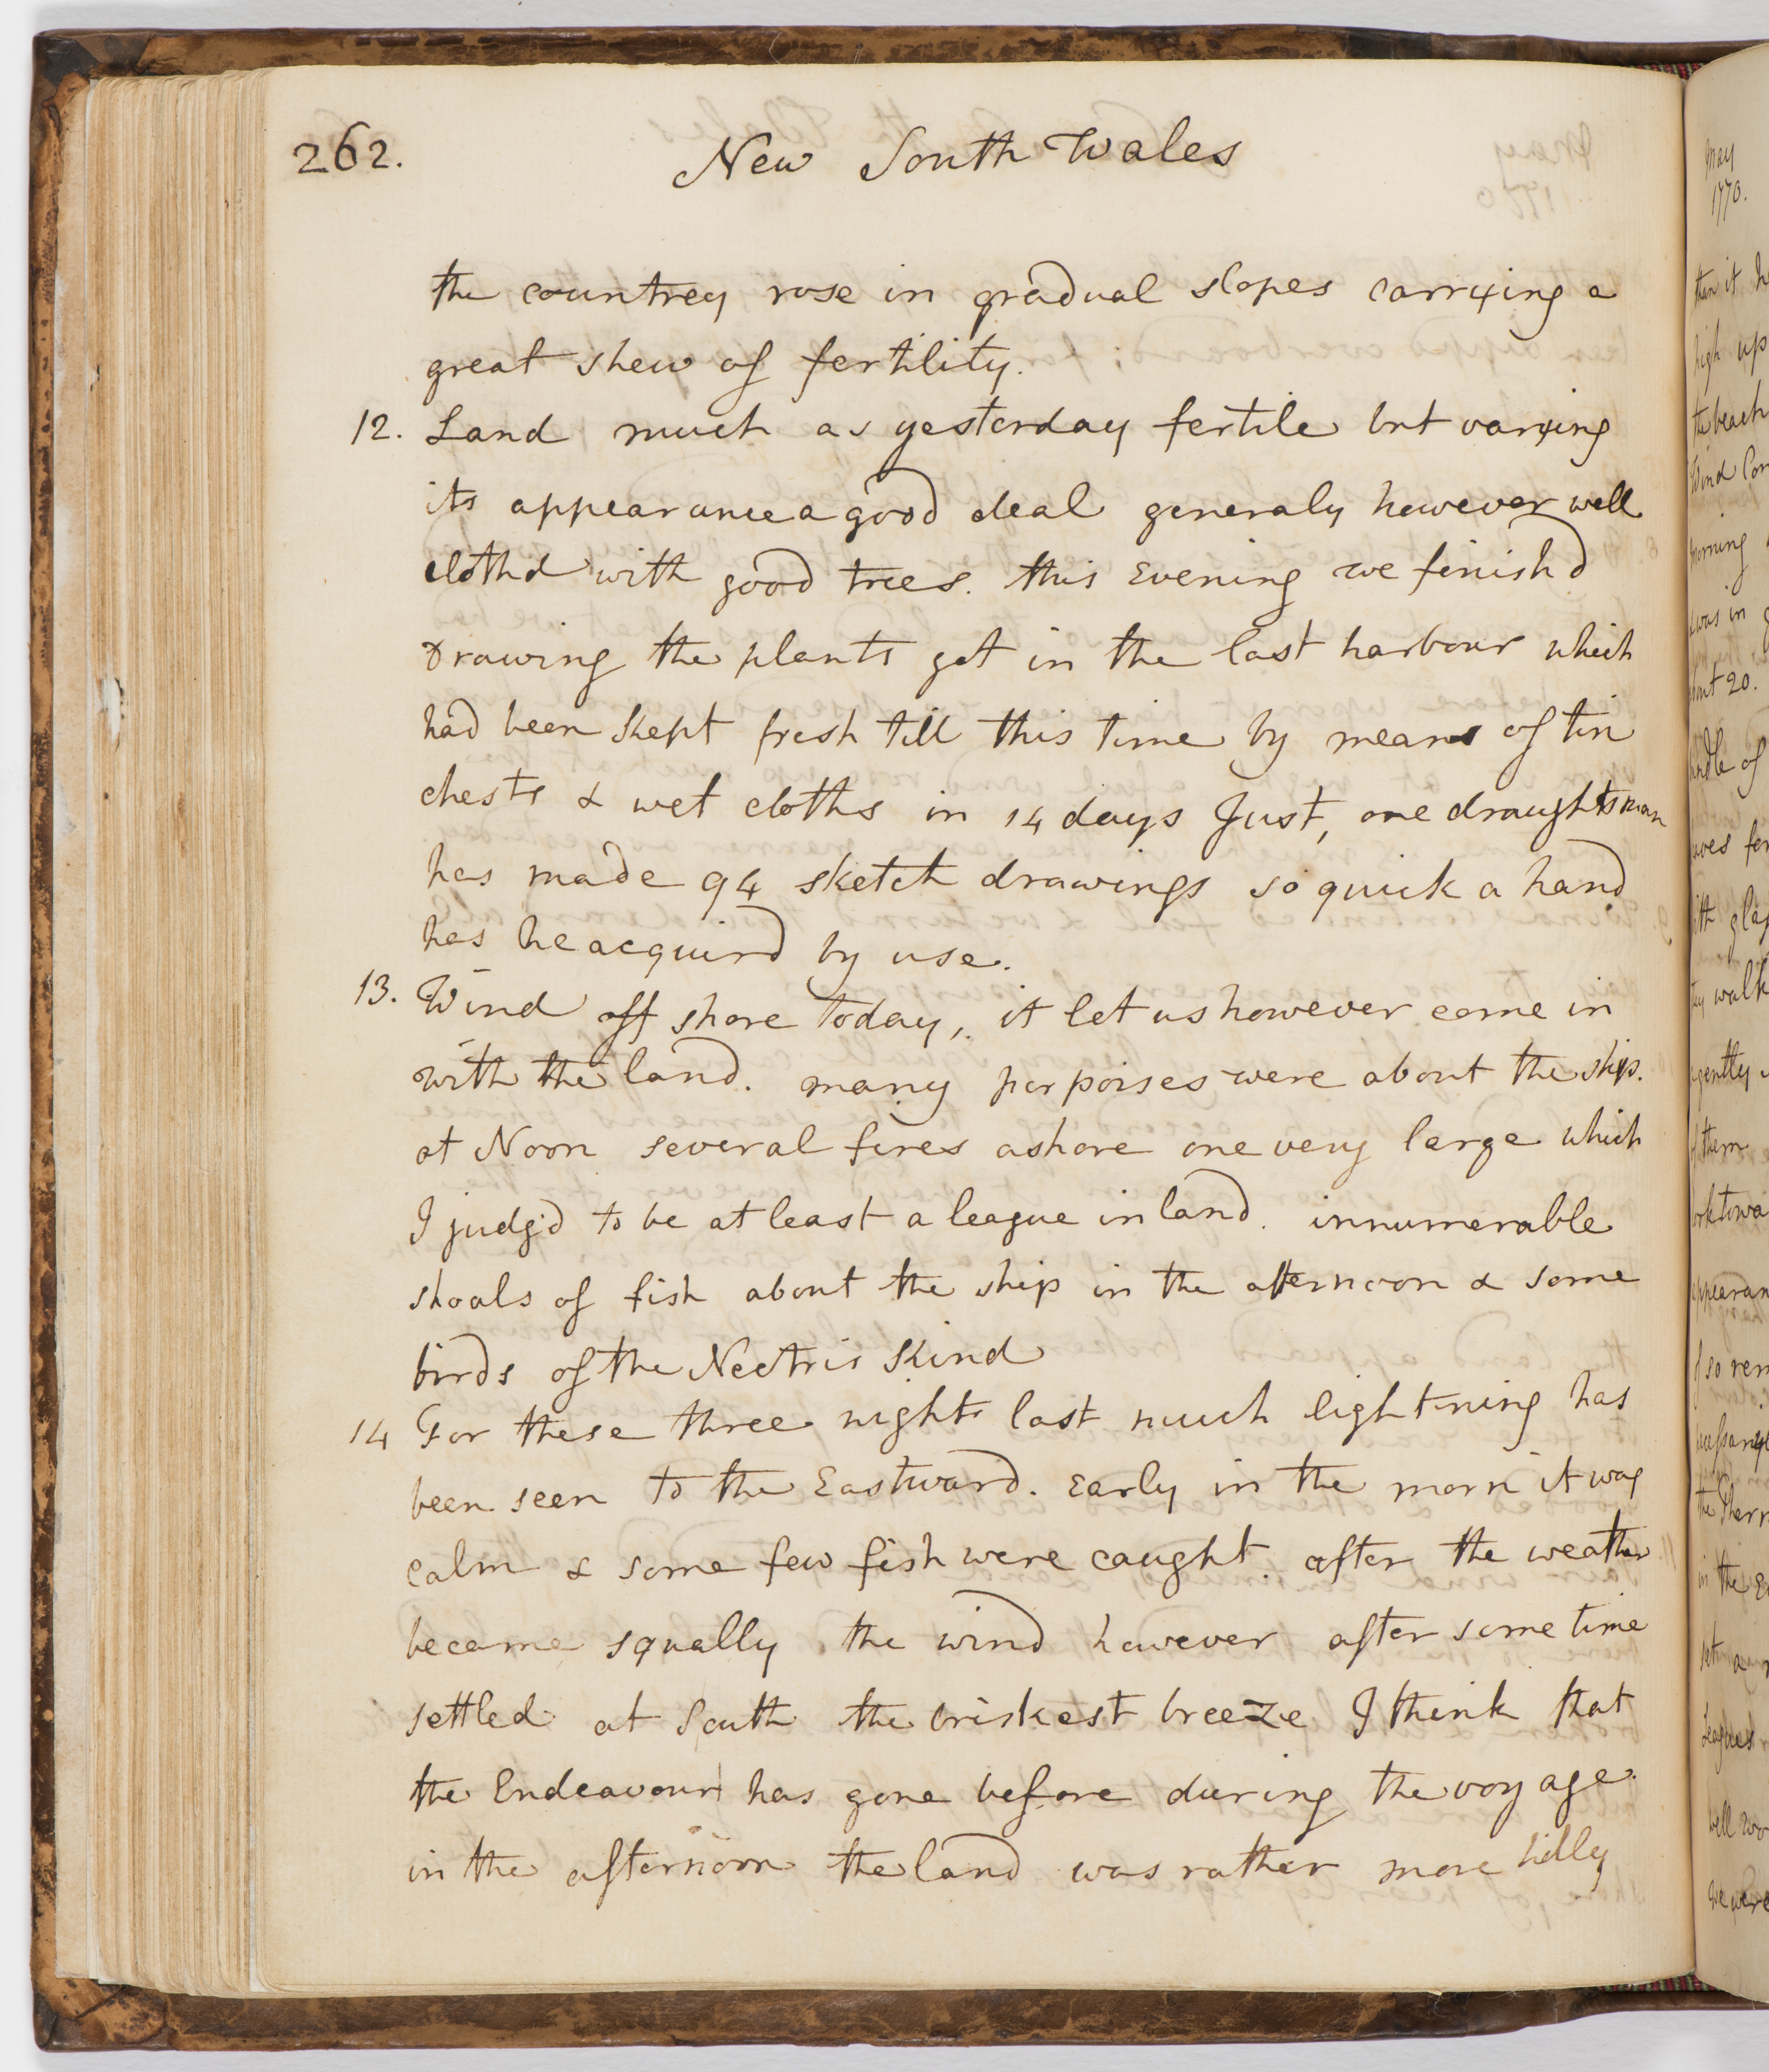 262.
New South Wales
the countrey rose in gradual slopes carrying a
great shew of fertility.
12. Land much as yesterday fertile but varying
its appearance a good deal generaly however well
clothd with good trees. this Evening we finishd
Drawing the plants got in the last harbour which
had been kept fresh till this time by means of tin
chests & wet cloths in 14 days Just, one draughtsman
has made 94 sketch drawings so quick a hand
has he acquird by use.
13. Wind off shore today, it let us however come in
with the land. many porpoises were about the ship.
at Noon several fires ashore one very large which
I judg'd to be at least a league inland. innumerable
shoals of fish about the ship in the afternoon & some
birds of the Nectris kind
14 For these three nights last much lightning has
been seen to the Eastward. Early in the morn it was
calm & some few fish were caught. after the weather
became squally the wind however after some time
settled at South the briskest breeze I think that
the Endeavour has gone before during the voyage.
in the afternoon the land was rather more hilly
May
1770.
than it
high up
the beach
Wind
morning
was in
about 20.
of
walk
gently
them
so
in the
set a
Leagues
well
we were